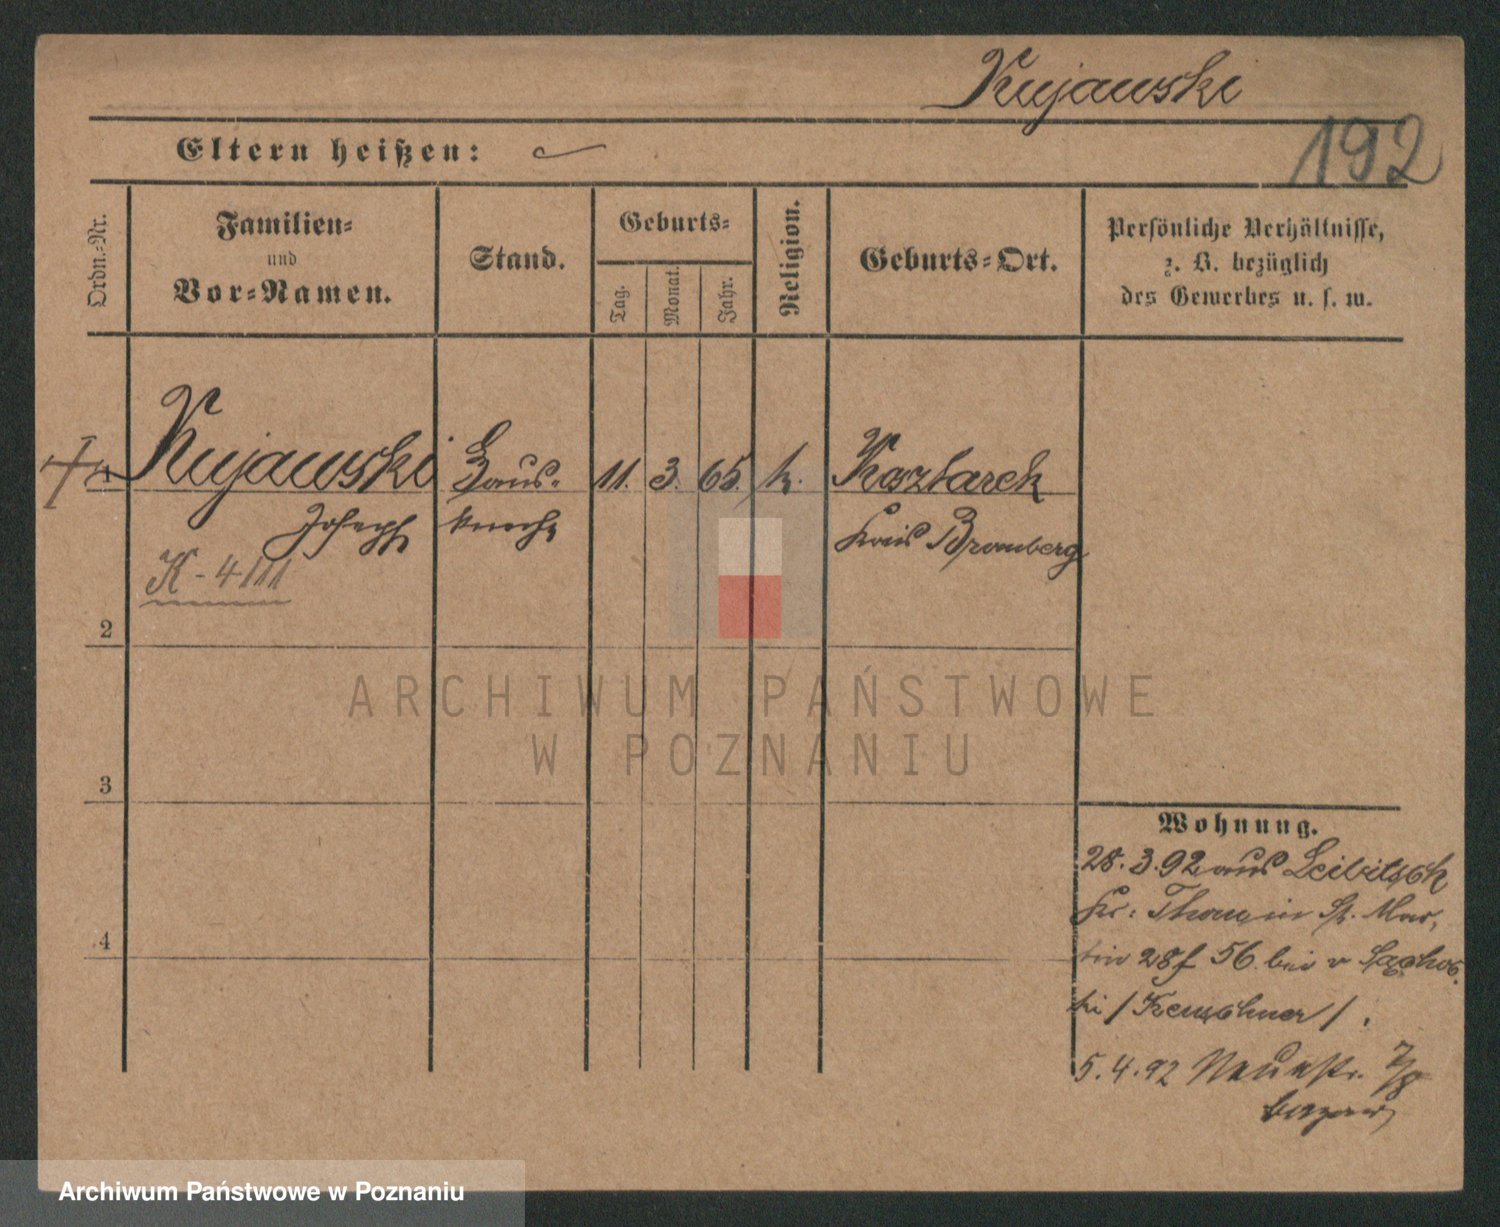 Kujawski
192
Eltern heißen:
Ordn.-Nr.
Familien-
und
Vor-Namen.
Stand.
Geburts-
Tag.
Monat.
Jahr.
Religion.
Geburts-Ort.
Persönliche Verhältnisse,
z. B. bezüglich
des Gewerbes u. s. w.
1
Kujawski
Haus-
11.
3.
65.
k.
Joseph
knecht
Kreis Bromberg
K-4111
2
ARCHIWUM PAŃSTWOWE
W POZNANIU
3
Wohnung.
28.3.92 aus Leibitsch
Kr: Thorn in St. Mar,
tin 28 f 56 bei v
ki /
/.
4
5.4.92 Neuestr. 7/8
Archiwum Państwowe w Poznaniu